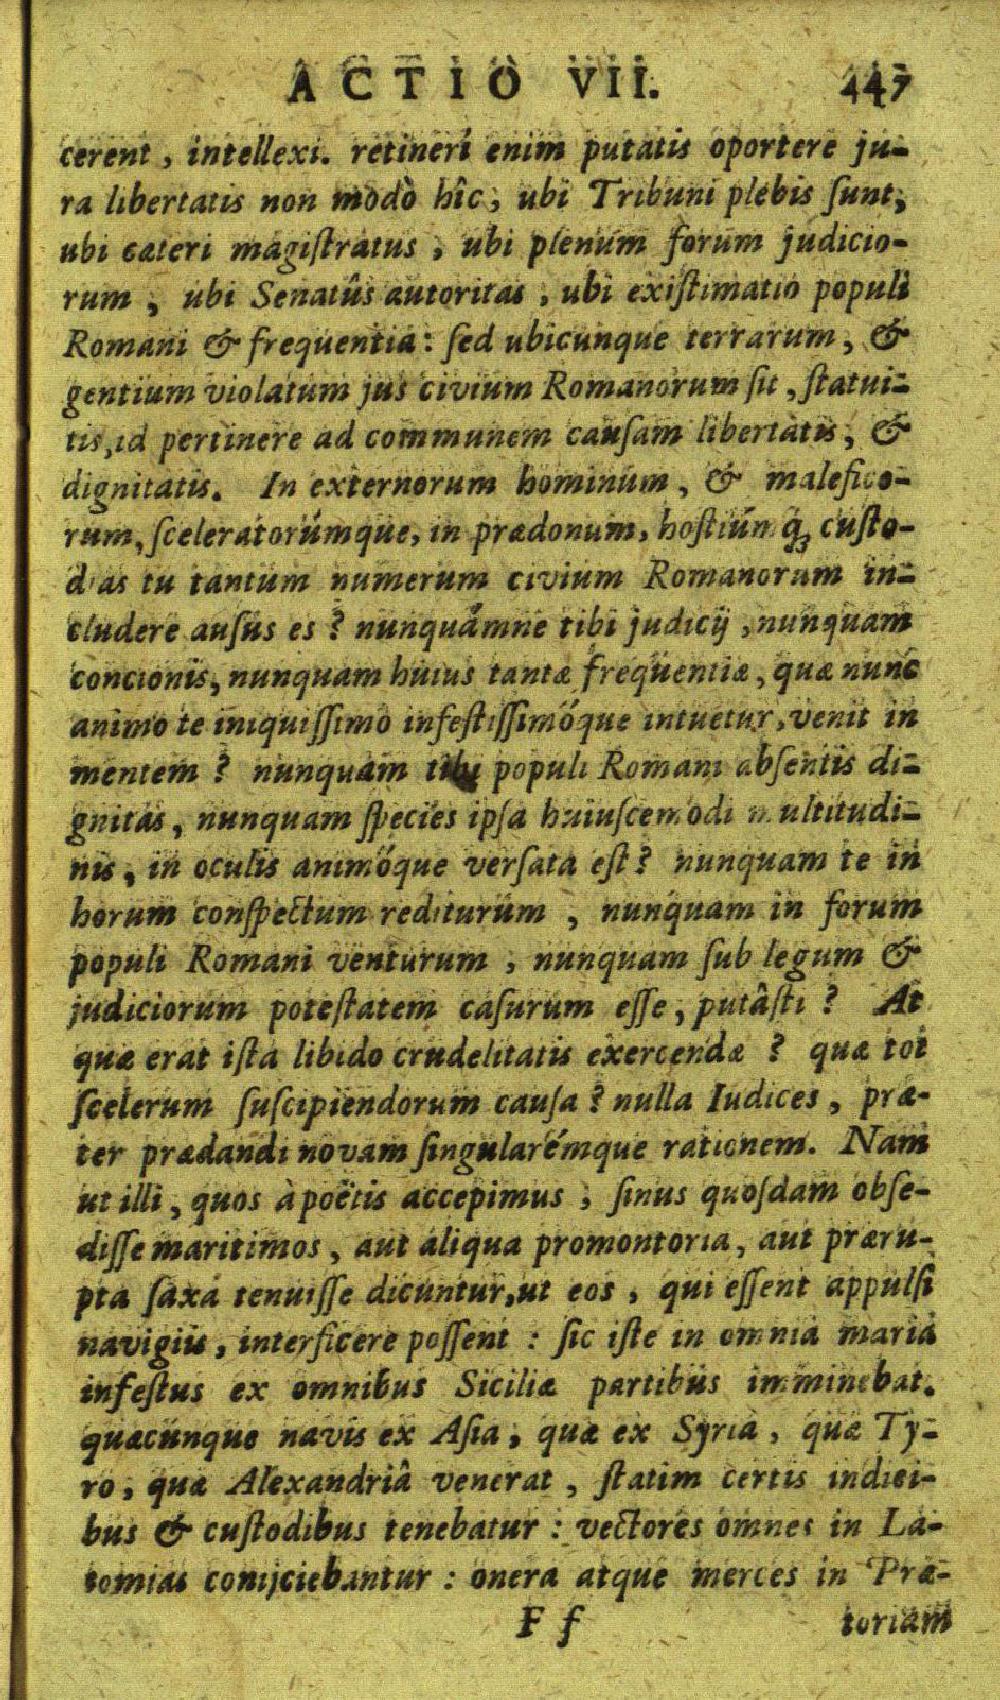 ACTIO VII. 447
cerent, intellexi. retineri enim putatis oportere ju-
ra libertatis non modò hîc, ubi Tribuni plebis ſunt,
ubi cæteri magiſtratus, ubi plenum forum judicio-
rum, ubi Senatûs autoritas, ubi exiſtimatio populi
Romani & frequentia: ſed ubicunque terrarum, &
gentium violatum jus civium Romanorum ſit, ſtatui-
tis, id pertinere ad communem cauſam libertatis, &
dignitatis. In externorum hominum, & malefico-
rum, ſceleratorúmque, in prædonum, hoſtiúmq́ꝫ cuſto-
dias tu tantum numerum civium Romanorum in-
cludere auſus es? nunquámne tibi judicij, nunquam
concionis, nunquam huius tantæ frequentiæ, quæ nunc
animo te iniquiſſimo infeſtiſſimóque intuetur, venit in
mentem? nunquam tibi populi Romani abſentis di-
gnitas, nunquam ſpecies ipſa huiuſcemodi multitudi-
nis, in oculis animóque verſata eſt? nunquam te in
horum conſpectum rediturum, nunquam in forum
populi Romani venturum, nunquam ſub legum &
judiciorum poteſtatem caſurum eſſe, putâſti? At
quæ erat iſta libido crudelitatis exercendæ? quæ tot
ſcelerum ſuſcipiendorum cauſa? nulla Iudices, præ-
ter prædandi novam ſingularémque rationem. Nam
ut illi, quos à poëtis accepimus, ſinus quoſdam obſe-
diſſe maritimos, aut aliqua promontoria, aut præru-
pta ſaxa tenuiſſe dicuntur, ut eos, qui eſſent appulſi
navigiis, interficere poſſent: ſic iſte in omnia maria
infeſtus ex omnibus Siciliæ partibus imminebat.
quæcunque navis ex Aſia, quæ ex Syria, quæ Ty-
ro, quæ Alexandriâ venerat, ſtatim certis indici-
bus & cuſtodibus tenebatur: vectores omnes in La-
tomias conijciebantur: onera atque merces in Præ-
F f toriam